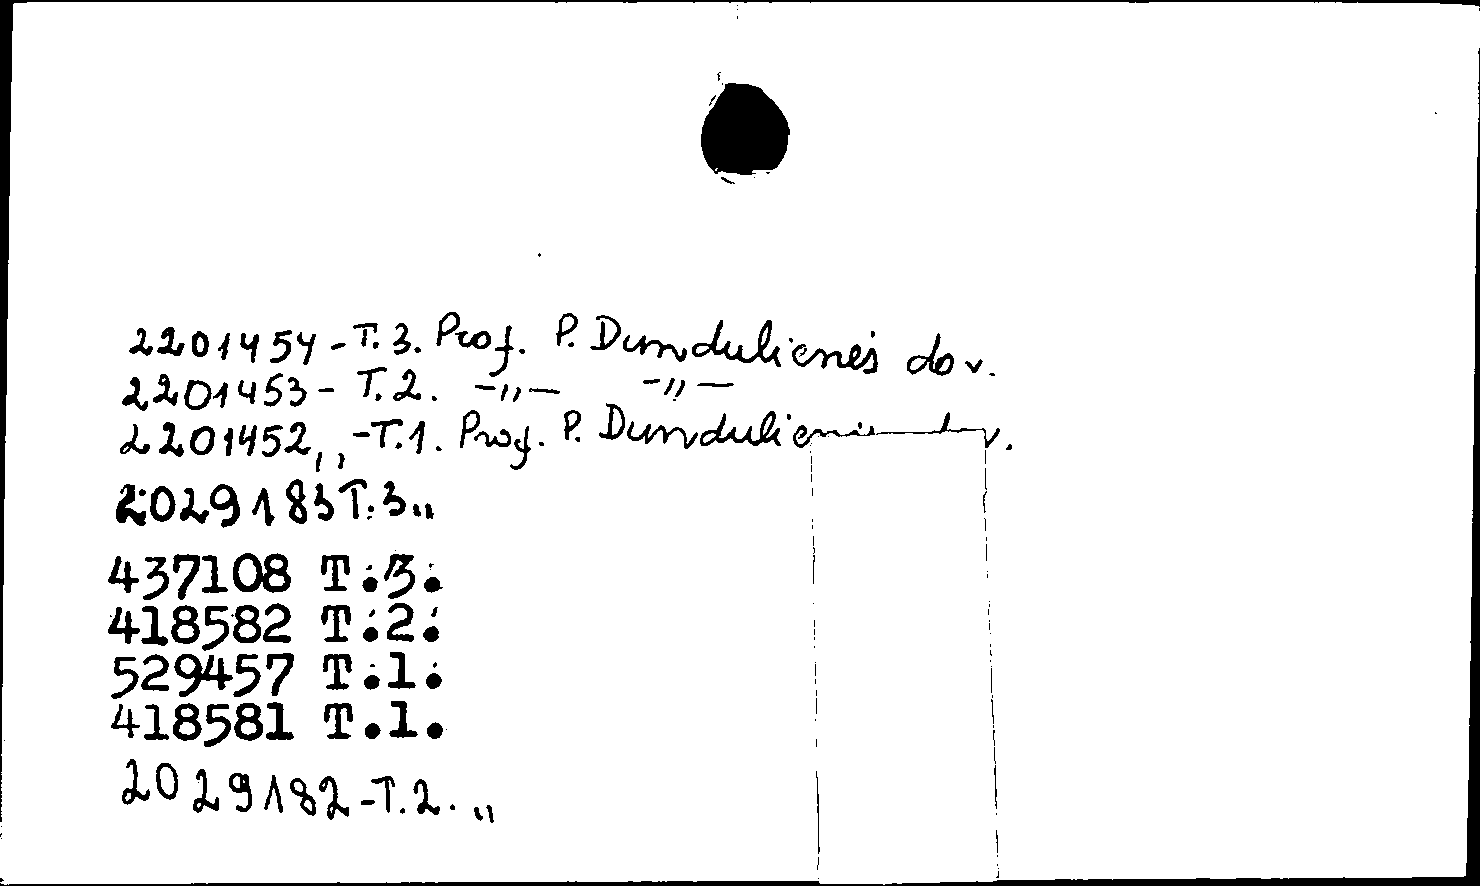 2201454 - T. 3. Prof. P. Dundulienės dov.
2201453 - T. 2. -„- -„-
2201452„ - T. 1. Prof. P. Dundulienės
2029183 T. 3„
437108 T.3.
418582 T.2.
529457 T.1.
418581 T.1.
2029182 - T. 2. „